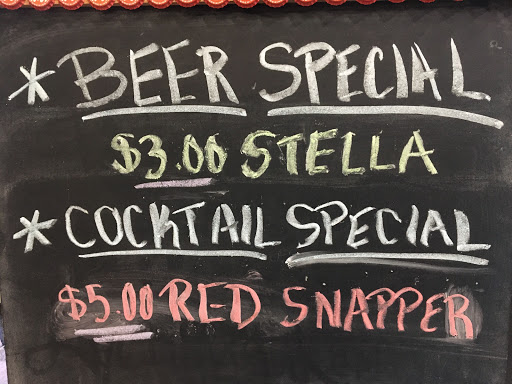 * BEER SPECIAL
$3.00 STELLA
* COCKTAIL SPECIAL
$5.00 RED SNAPPER